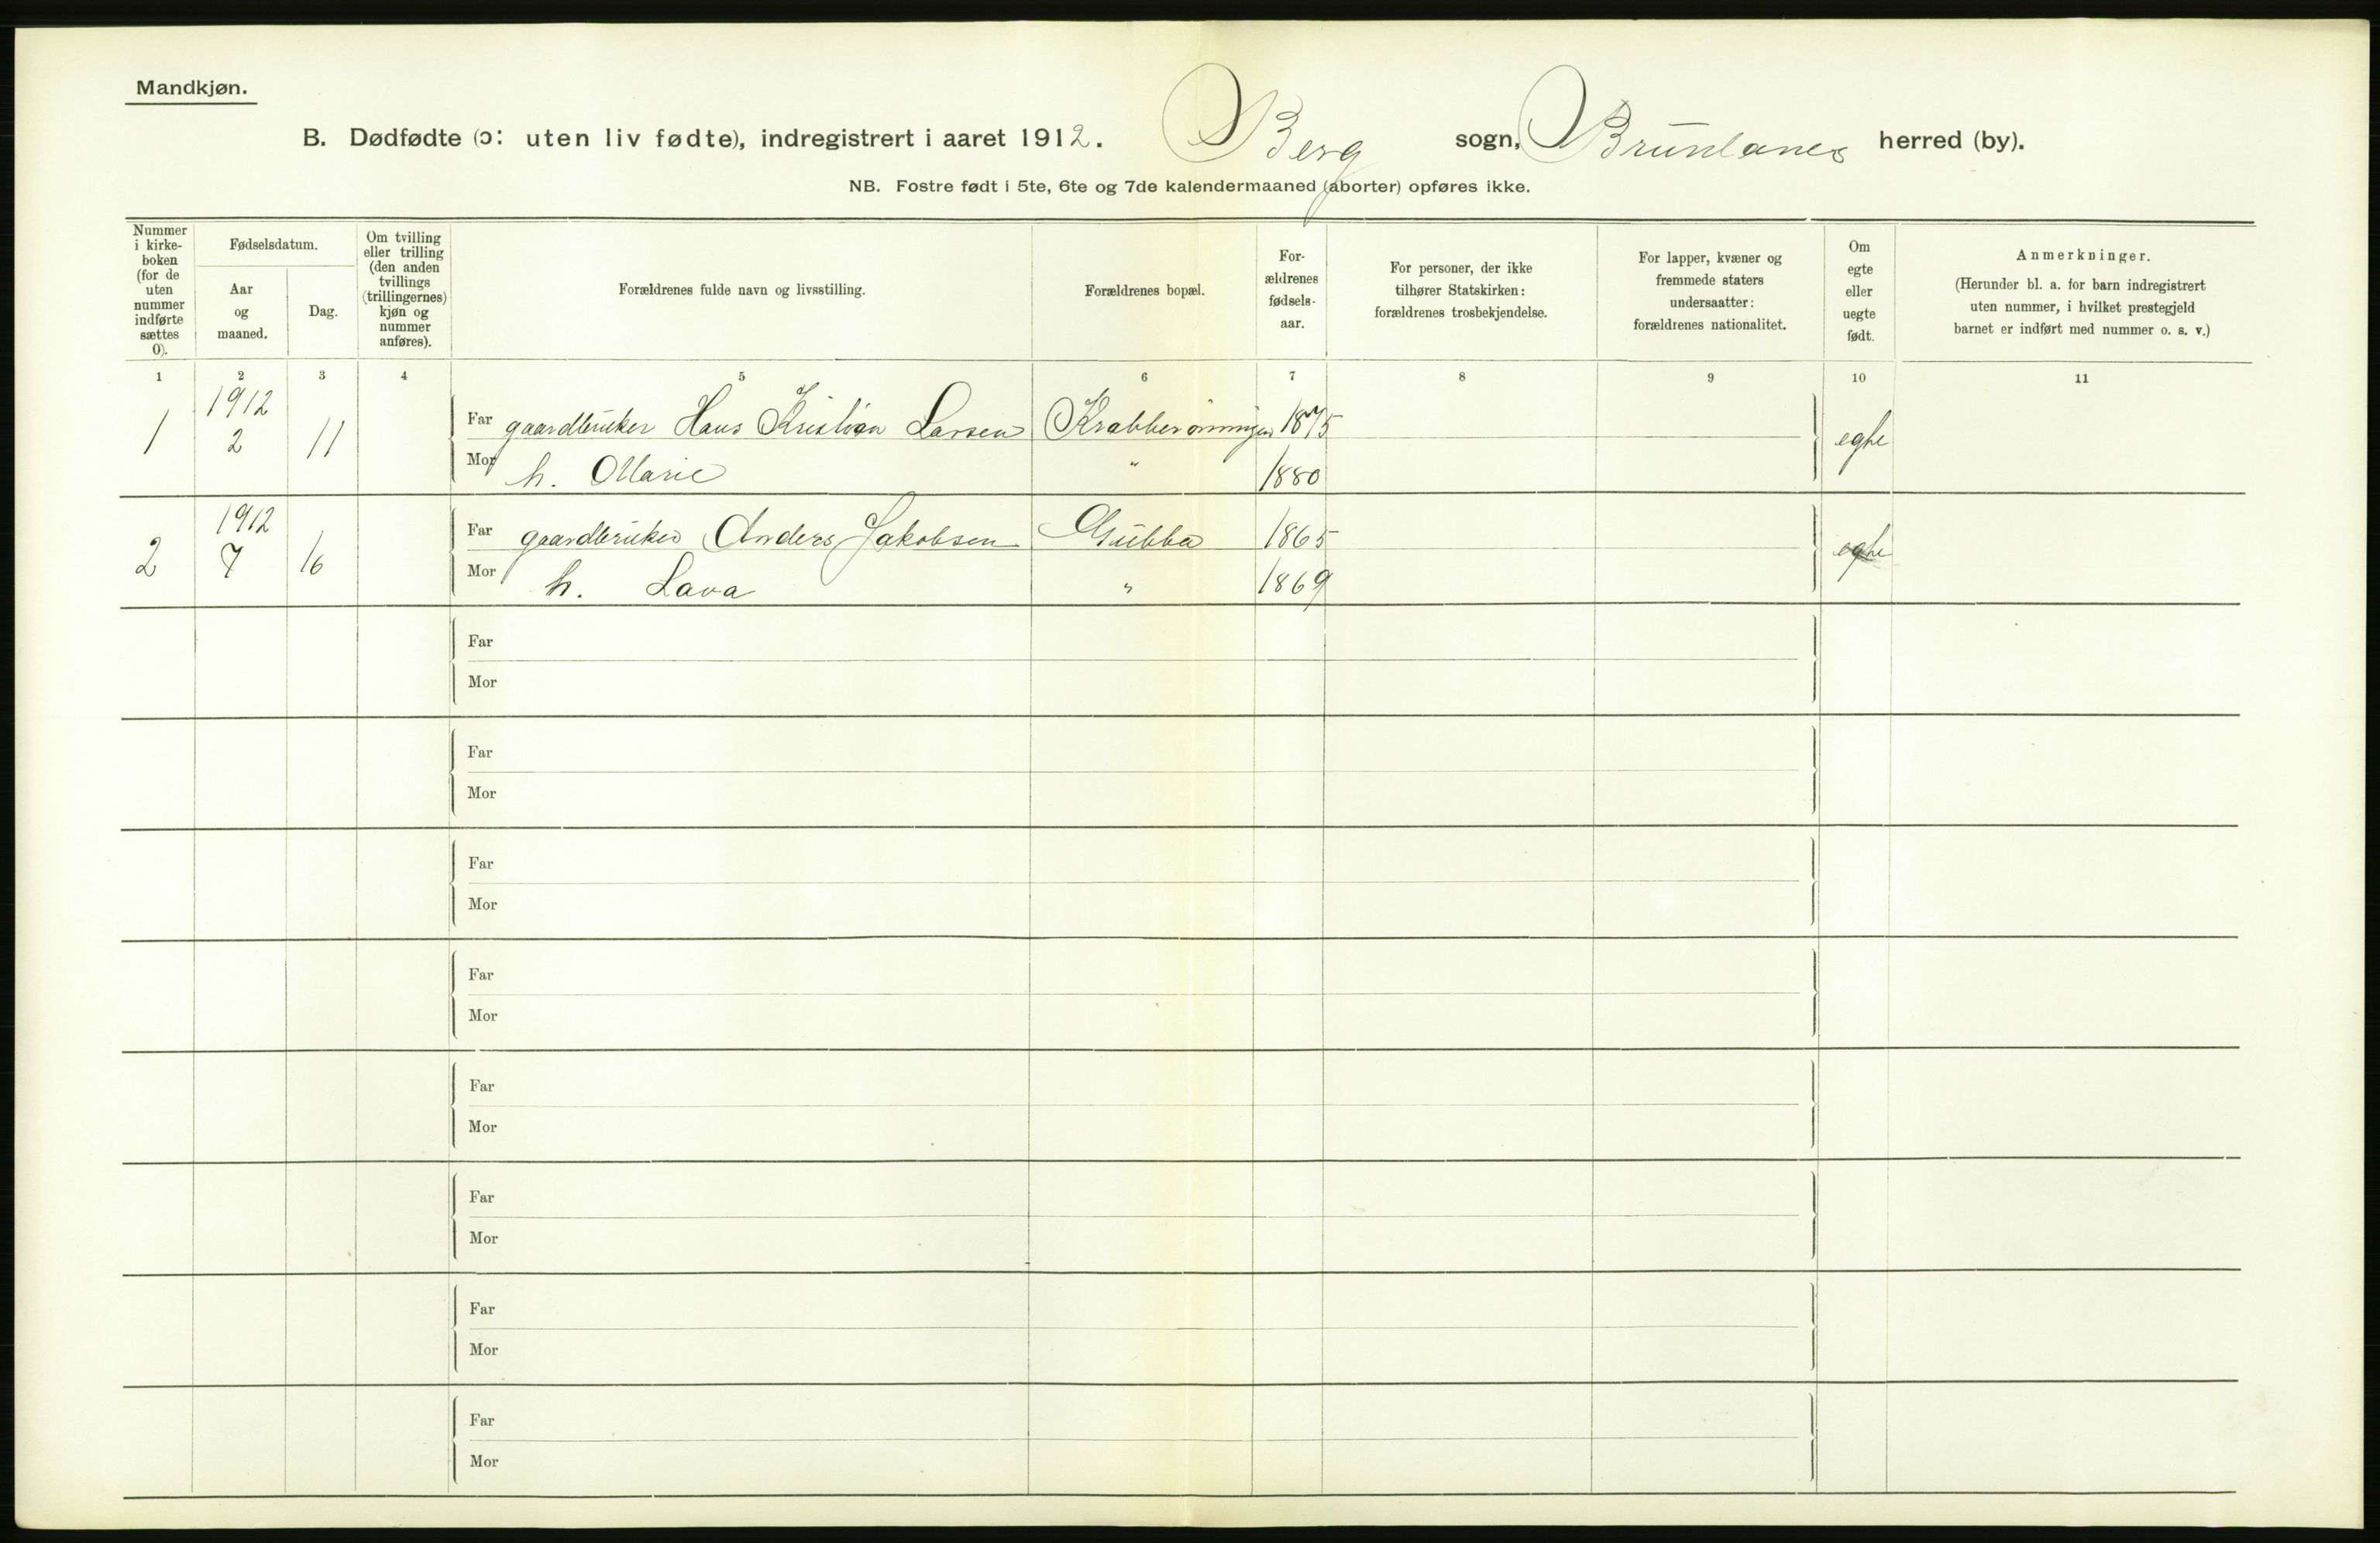 Mandkjøn.
B. Dødfødte (ɔ: uten liv fødte), indregistrert i aaret 1912. Berg sogn, Brunlanes herred (by).
NB. Fostre født i 5te, 6te og 7de kalendermaaned (aborter) opføres ikke.
Nummer i kirke-boken (for de uten nummer indførte sættes 0).
Fødselsdatum.
Aar og maaned.
Dag.
Om tvilling eller trilling (den anden tvillings (trillingernes) kjøn og nummer anføres).
Forældrenes fulde navn og livsstilling.
Forældrenes bopæl.
For-ældrenes fødsels-aar.
For personer, der ikke tilhører Statskirken: forældrenes trosbekjendelse.
For lapper, kvæner og fremmede staters undersaatter: forældrenes nationalitet.
Om egte eller uegte født.
Anmerkninger.
(Herunder bl. a. for barn indregistrert uten nummer, i hvilket prestegjeld barnet er indført med nummer o. s. v.)
1 2 3 4 5 6 7 8 9 10 11
1 1912 2 11 Far gaardbruker Hans Kristian Larsen 1875 egte
Mor h. Marie " 1880
2 1912 7 16 Far gaardbruker Anders Jakobsen Gubba 1865 egte
Mor h. Lava " 1869
Far
Mor
Far
Mor
Far
Mor
Far
Mor
Far
Mor
Far
Mor
Far
Mor
Far
Mor